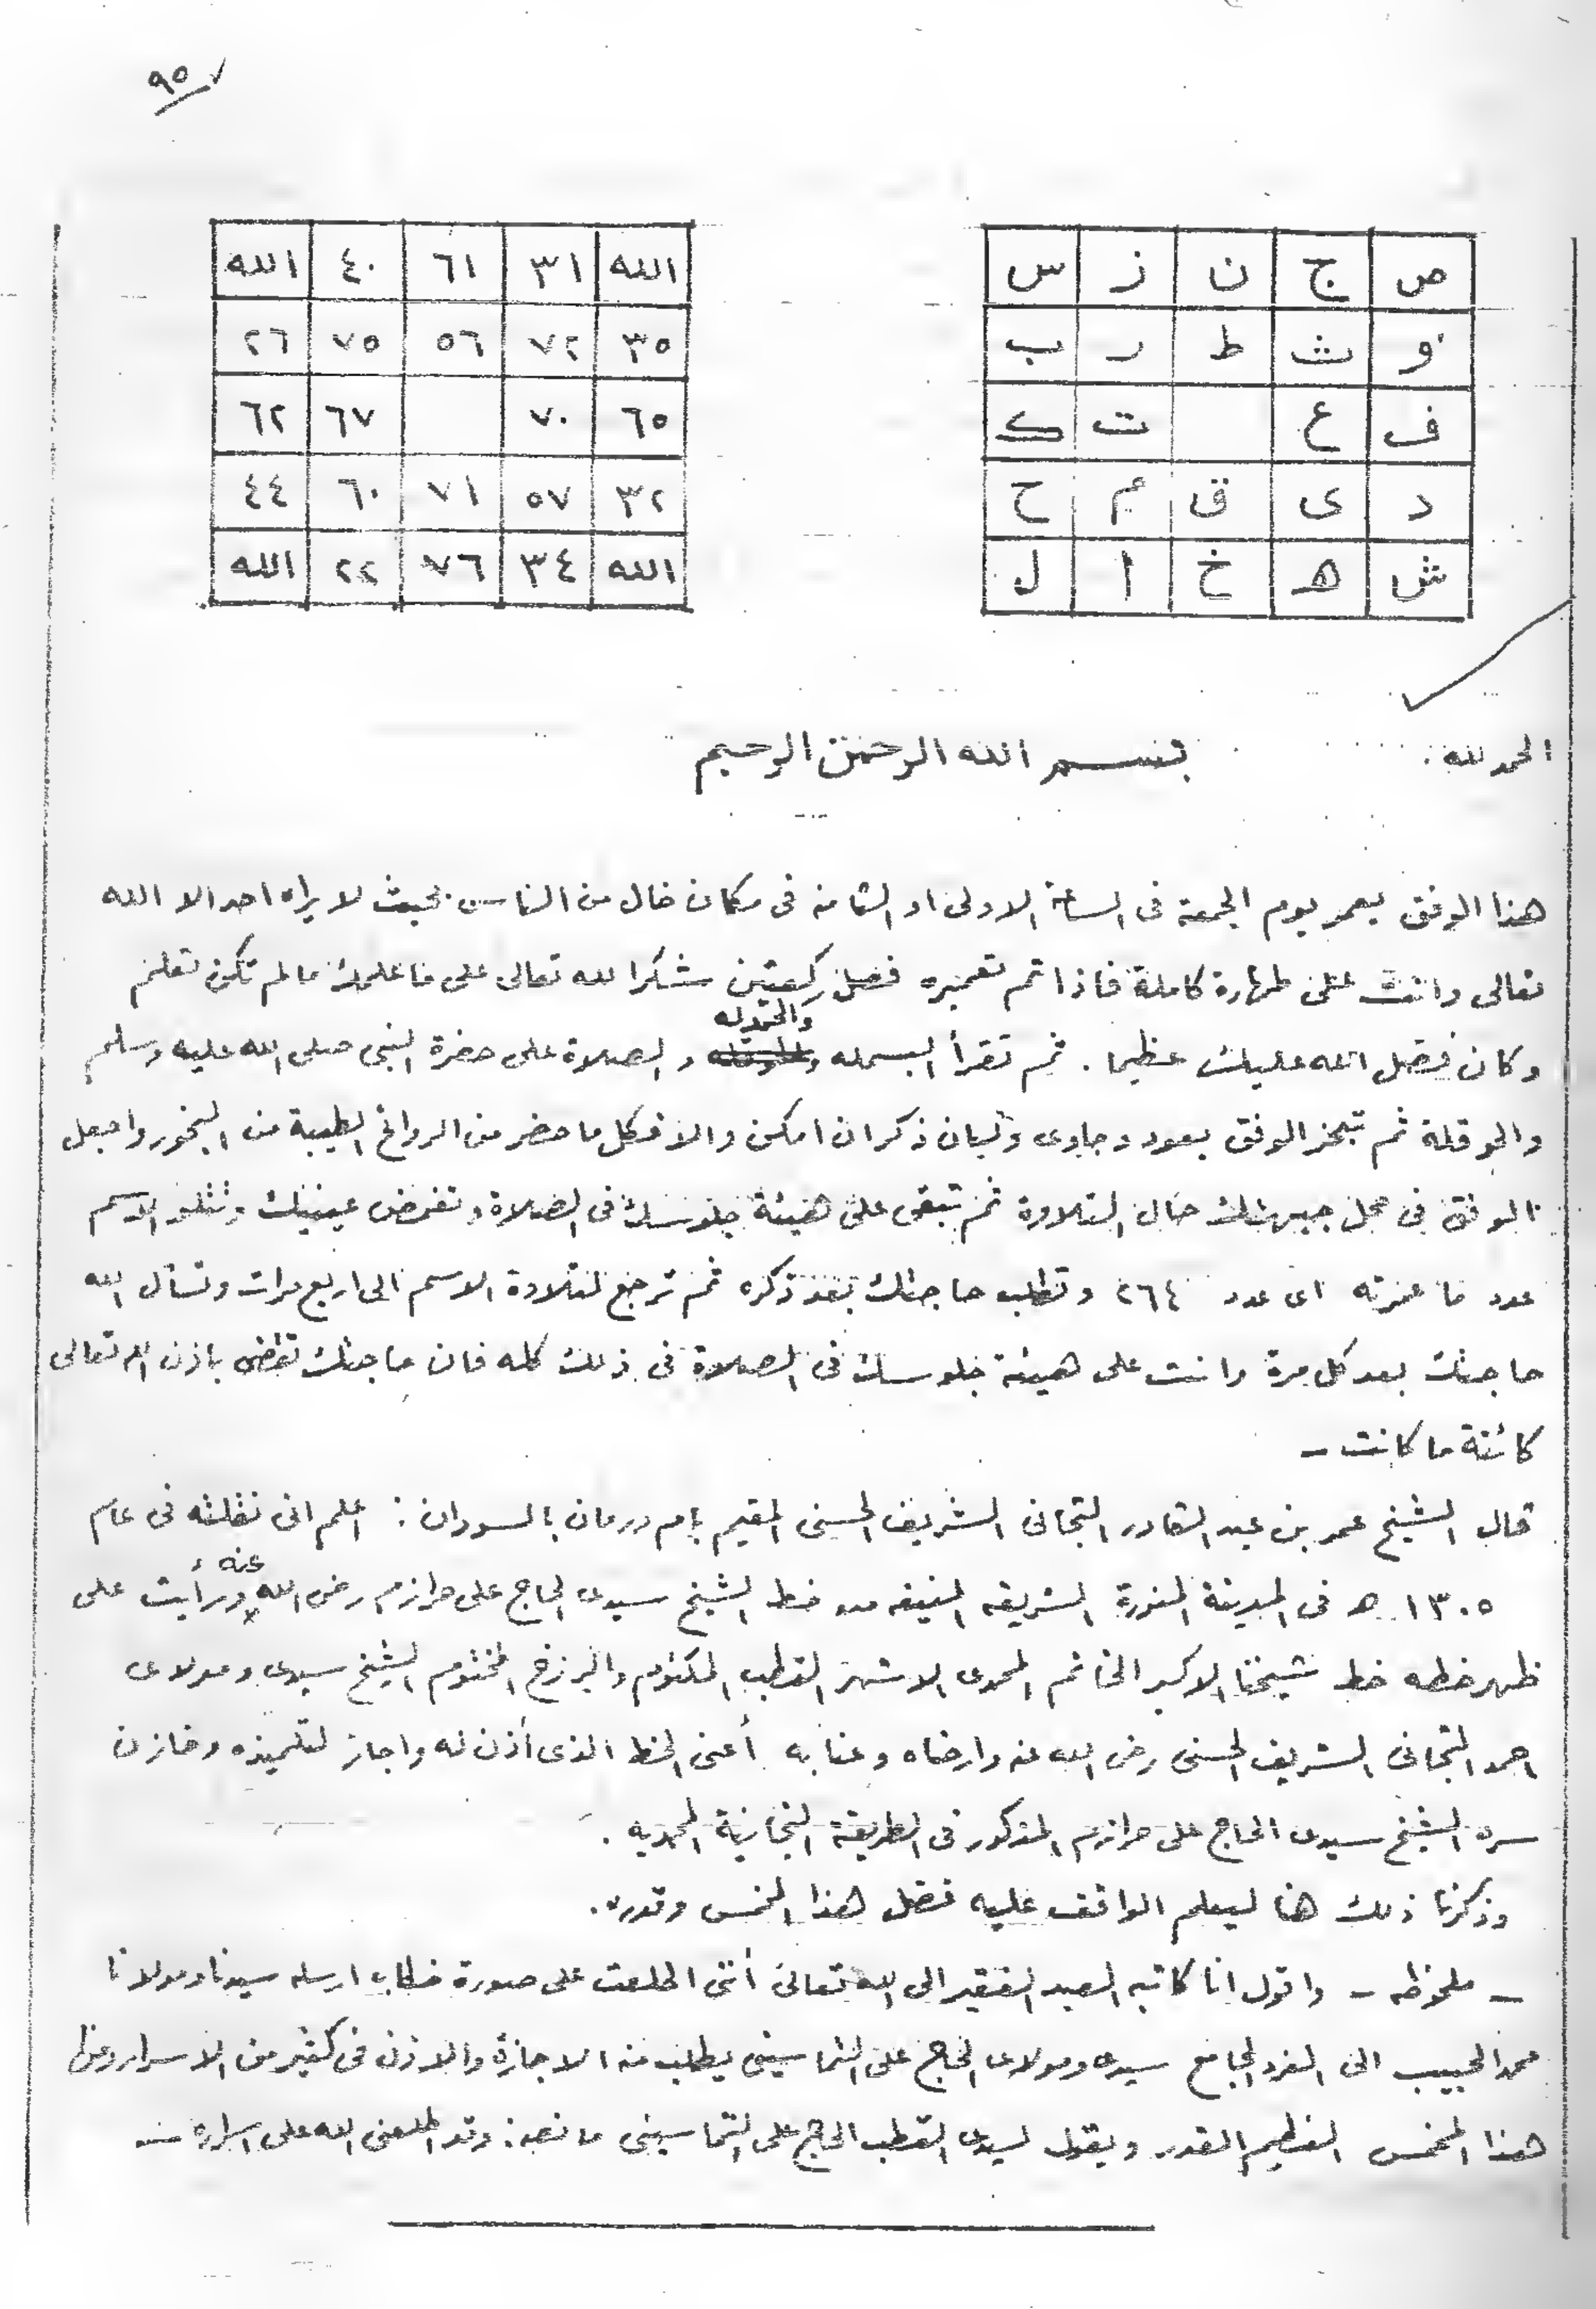 ٩٥
ص ج ن ز س
و ث ط ر ب
ف ع ت ك
د ى ق م ح
ش ه خ ا ل
الله ٣١ ٦١ ٤٠ الله
٣٥ ٧٢ ٥٦ ٧٥ ٢٦
٦٥ ٧٠ ٦٧ ٦٢
٣٢ ٥٧ ٧١ ٦٠ ٤٤
الله ٣٤ ٧٦ ٢٢ الله
الحمد لله بسم الله الرحمن الرحيم
هذا الوفق يعمر يوم الجمعة فى الساعة الاولى او الثامنة فى مكان خال من الناس بحيث لا يراه احد الا الله
تعالى وانت على طهارة كاملة فاذا تم تعميره فصل ركعتين شكرا لله تعالى على ما علمك ما لم تكن تعلم
وكان فضل الله عليك عظيما . ثم تقرأ البسمله والحمدله و الصلاة على حضرة النبى صلى الله عليه وسلم
والحوقلة ثم تبخر الوفق بعود وجاوى ولبان ذكر ان امكن والا فكل ما حضر من الروائح الطيبة من البخور واجعل
الوفق فى محل جبهتك حال التلاوة ثم تبقى على هيئة جلوسك فى الصلاة وتغمض عينيك وتتلو الاسم
عدد ما عمرته اى عدد ٢٦٤ وتطلب حاجتك بعد ذكره ثم ترجع لتلاوة الاسم الى اربع مرات وتسأل الله
حاجتك بعد كل مرة وانت على هيئة جلوسك فى الصلاة فى ذلك كله فان حاجتك تقضى باذن الله تعالى
كائنة ما كانت -
قال الشيخ عمر بن عبد القادر التجانى الشريف الحسنى المقيم بام درمان بالسودان : اعلم انى نقلته فى عام
١٣٠٥ ه فى المدينة المنورة الشريفه المنيفه من خط الشيخ سيدى الحاج على حرازم رضى الله عنه ورأيت على
ظهر خطه خط شيخنا الاكبر الخاتم المحمدى الاشهر القطب المكتوم والبرزخ المختوم الشيخ سيدى ومولاى
احمد التجانى الشريف الحسنى رضى الله عنه وارضاه وعنا به أعنى الخط الذى أذن له واجاز لتلميذه وخازن
سره الشيخ سيدى الحاج على حرازم المذكور فى الطريقة التجانية المحمديه .
وذكرنا ذلك هنا ليعلم الواقف عليه فضل هذا المخمس وقدره .
- ملحوظه - واقول انا كاتبه العبد الفقير الى الله تعالى أننى اطلعت على صورة خطاب ارسله سيدنا ومولانا
محمد الحبيب الى الفرد الجامع سيدى ومولاى الحاج على التماسينى يطلب منه الاجازة والاذن فى كثير من الاسرار
هذا المخمس العظيم القدر ويقول لسيدى القطب الحاج على التماسينى ما نصه : وقد اطلعنى الله على اسراره -